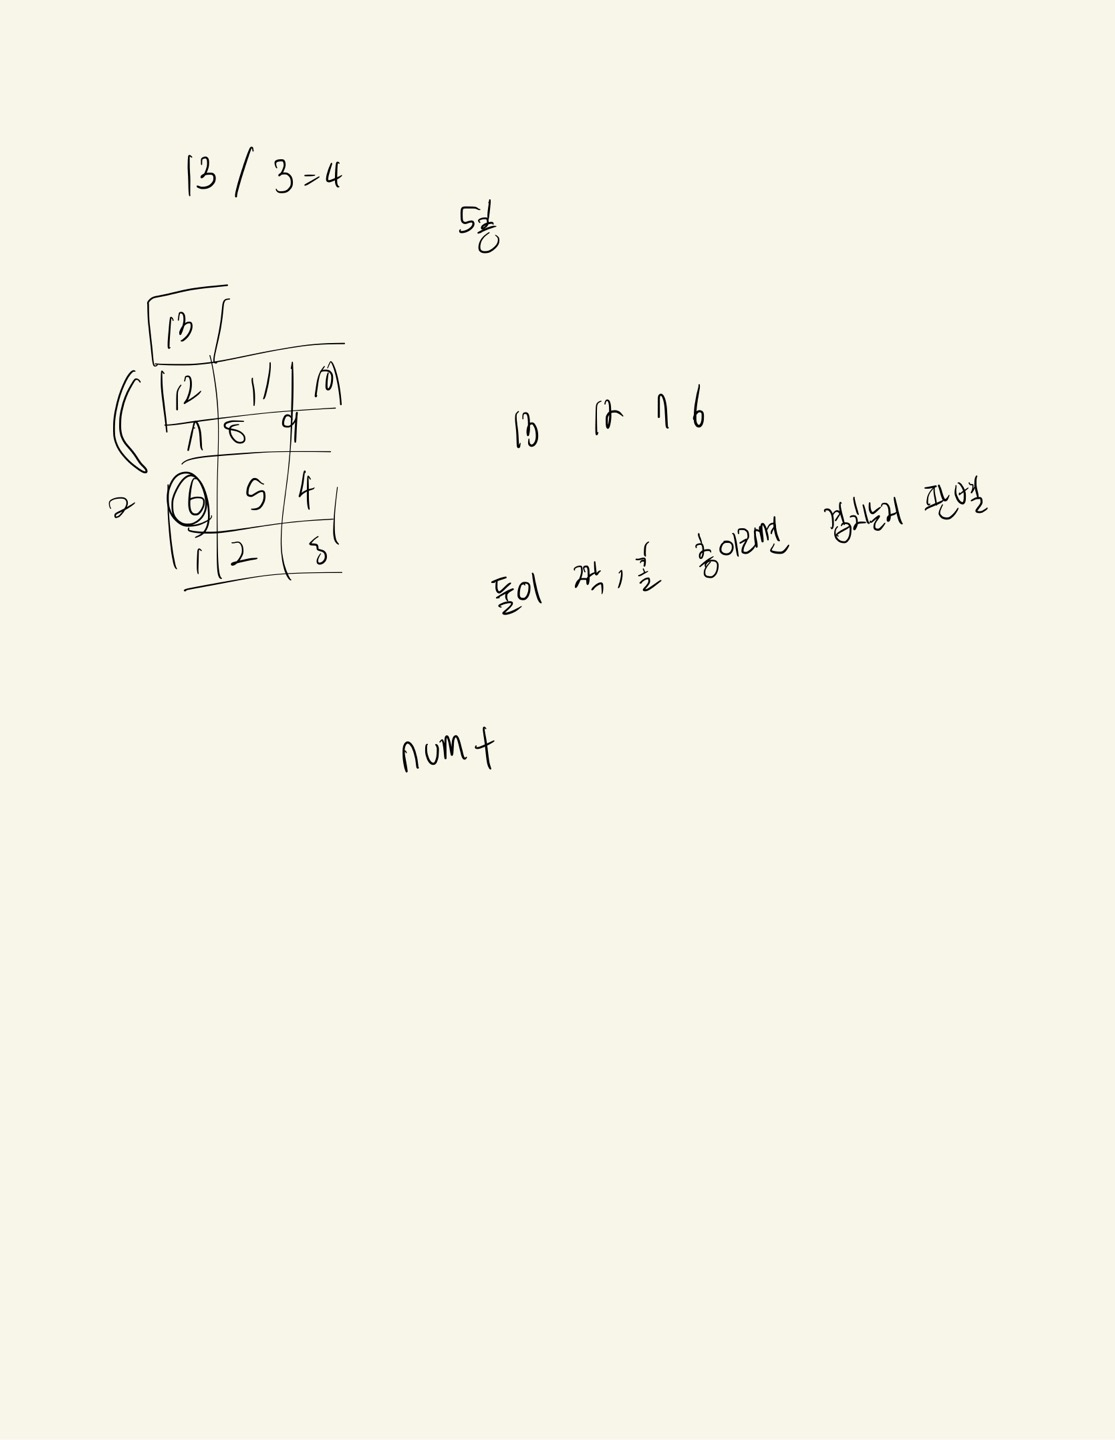 13 / 3 = 4
5층
13
12 11 10
7 8 9
2 6 5 4
1 2 3
13 12 7 6
둘이 짝, 홀 층이라면 겹치는지 판별
num +